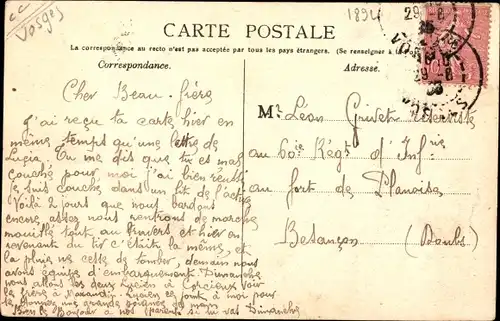 Vosges
1894
CARTE POSTALE
La correspondance au recto n'est pas acceptée par tous les pays étrangers. (Se renseigner à la
Correspondance.
Adresse.
Cher Beau-frère
j'ai reçu ta carte hier en
même temps qu'une lettre de
Lucia. Tu me dis que tu es mal
couché pour moi j'ai bien réussi
je suis couché dans un lit de l'active
Voilà 2 jours que nous
encore assez nous rentrons de marche
mouillé tout au travers et hier en
revenant du tir c'était la même, et
la pluie ne cesse de tomber, demain nous
avons d'embarquement. Dimanche
nous allons les deux Lucien à Corcieux voir
le frère à Lucien se joint à moi pour
te donner une grande poignée de main
Bien le Bonjour à nos parents si tu vas Dimanche
Mr. Léon Grivet réserviste
au 60ie Régt d'Infie
au fort de Planoise
Besançon (Doubs)